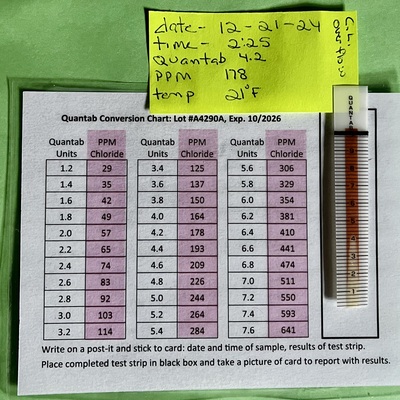 date- 12-21-24
time- 2:25
Quantab 4.2
PPM 178
temp 21°F
Quantab Conversion Chart: Lot #A4290A, Exp. 10/2026
Quantab Units PPM Chloride Quantab Units PPM Chloride Quantab Units PPM Chloride
1.2 29 3.4 125 5.6 306
1.4 35 3.6 137 5.8 329
1.6 42 3.8 150 6.0 354
1.8 49 4.0 164 6.2 381
2.0 57 4.2 178 6.4 410
2.2 65 4.4 193 6.6 441
2.4 74 4.6 209 6.8 474
2.6 83 4.8 226 7.0 511
2.8 92 5.0 244 7.2 550
3.0 103 5.2 264 7.4 593
3.2 114 5.4 284 7.6 641
QUANTAB
8
7
6
5
4
3
2
1
Write on a post-it and stick to card: date and time of sample, results of test strip.
Place completed test strip in black box and take a picture of card to report with results.